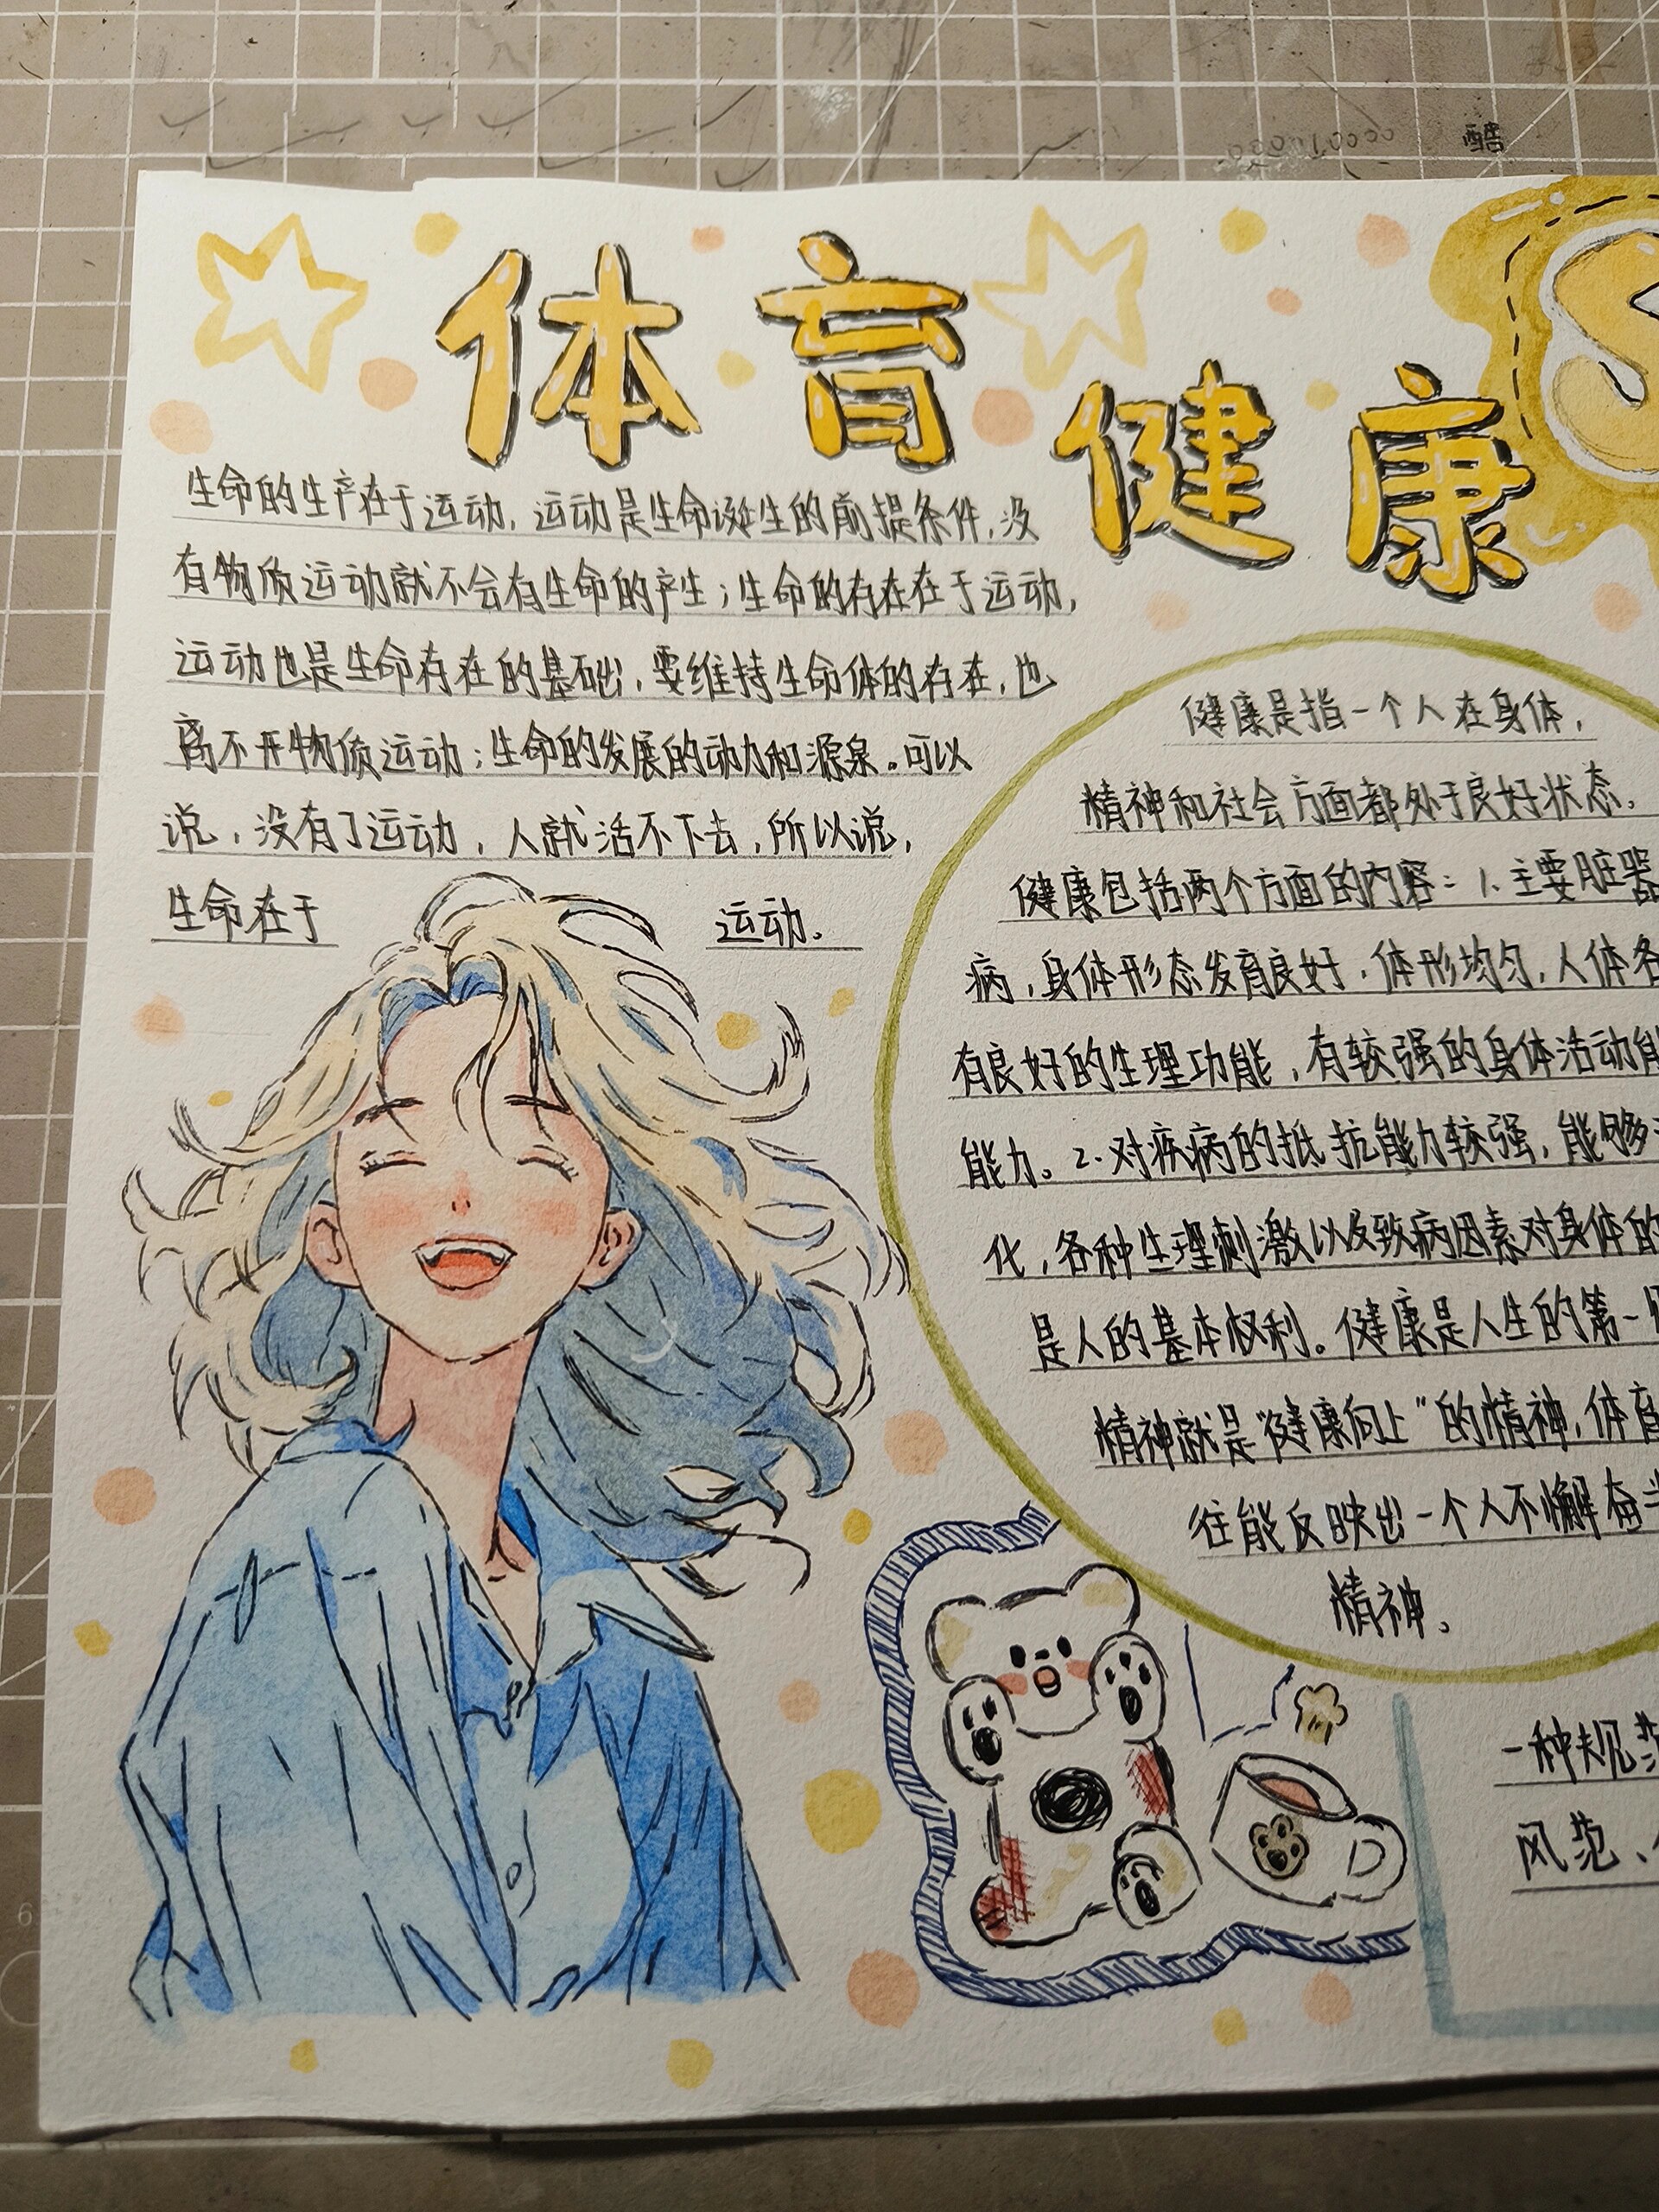 酷
体育
健康
S
生命的生产在于运动，运动是生命诞生的前提条件，没
有物质运动就不会有生命的产生；生命的存在在于运动，
运动也是生命存在的基础，要维持生命体的存在，也
离不开物质运动；生命的发展的动力和源泉。可以
说，没有了运动，人就活不下去，所以说，
生命在于 运动。
健康是指一个人在身体，
精神和社会方面都处于良好状态。
健康包括两个方面的内容：1.主要脏器
病，身体形态发育良好，体形均匀，人体各
有良好的生理功能，有较强的身体活动能
能力。2.对疾病的抵抗能力较强，能够
化，各种生理刺激以及致病因素对身体的
是人的基本权利。健康是人生的第一
精神就是“健康向上”的精神，体育
往能反映出一个人不懈奋
精神。
一种规范
风范、
6